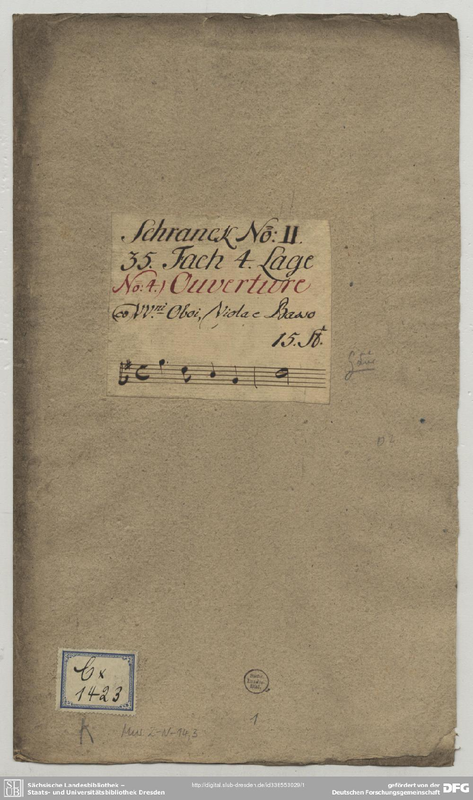 Schranck No: II.
35. Fach 4. Lage
No: 4.) Ouverture
co VV.ni Oboi, Viola e Basso
15. St.
Cx
1423
1
Sächsische Landesbibliothek –
Staats- und Universitätsbibliothek Dresden
http://digital.slub-dresden.de/id331553029/1
gefördert von der
Deutschen Forschungsgemeinschaft
DFG